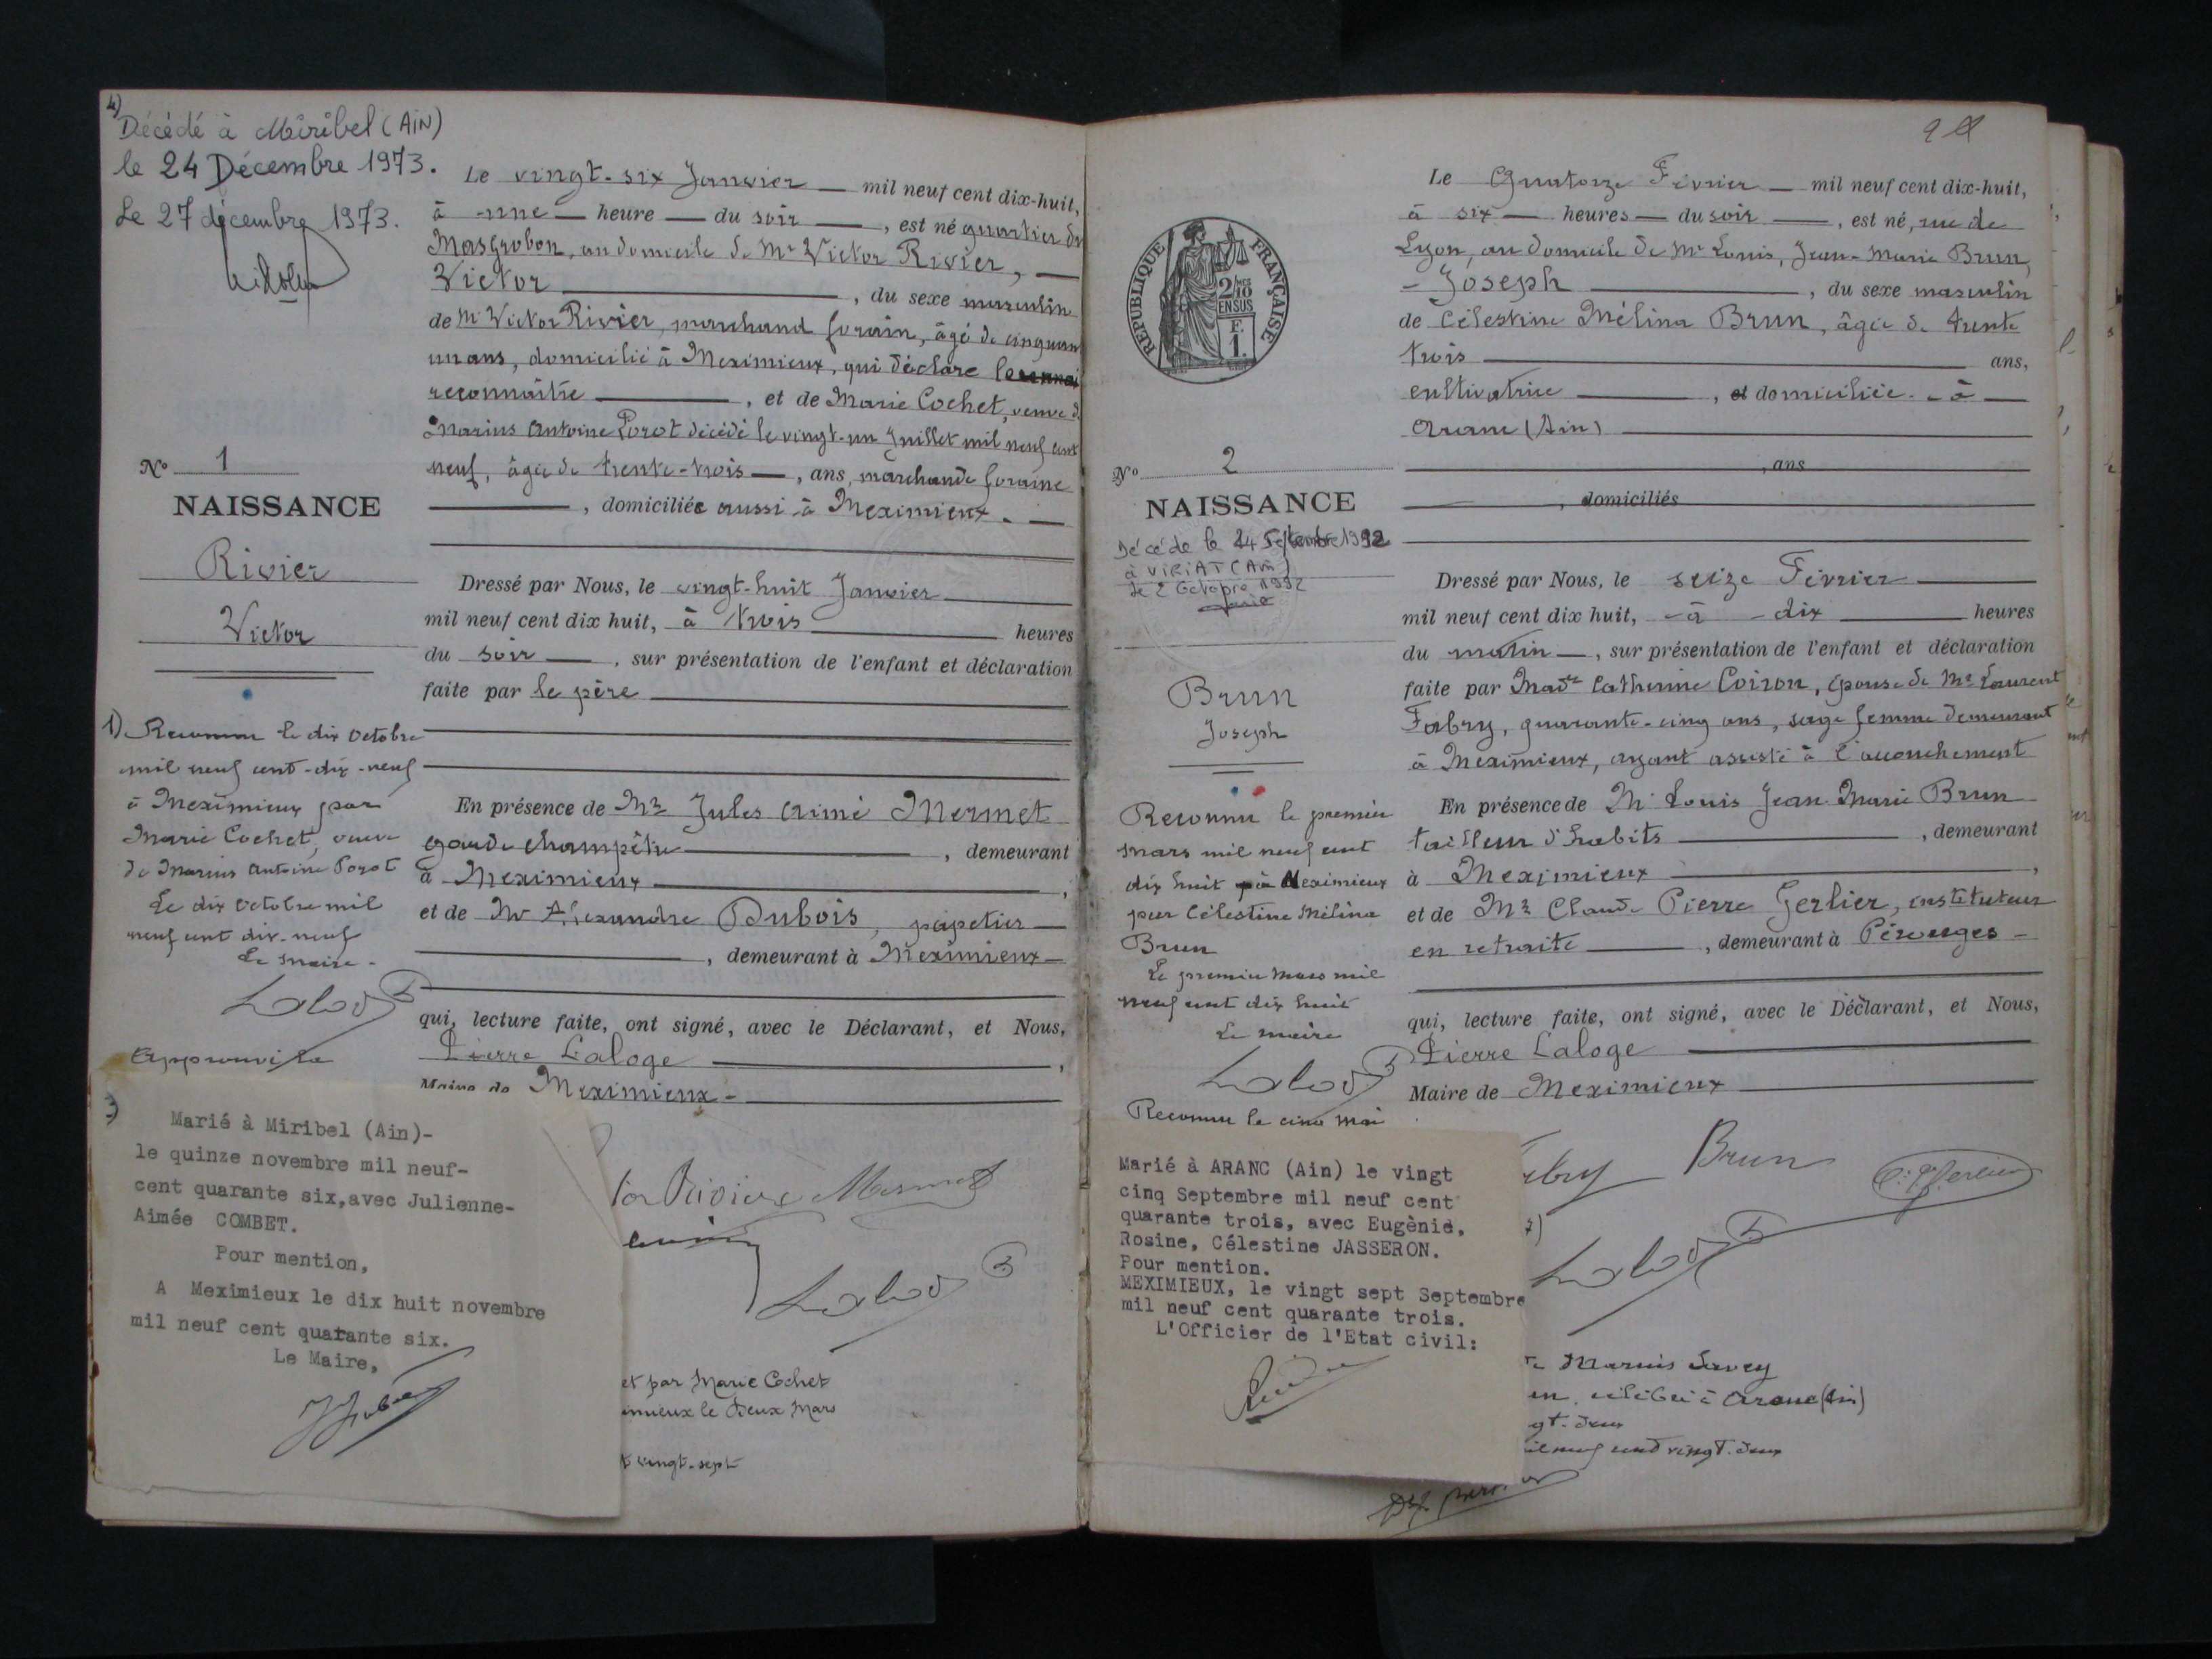 4)
Décédé à Miribel (AIN)
le 24 Décembre 1973.
Le 27 décembre 1973.
Le vingt-six Janvier — mil neuf cent dix-huit,
à une — heure — du soir —, est né quartier du
Masgrobon, au domicile de Mr Victor Rivier, —
Victor —, du sexe masculin
de Mr Victor Rivier, marchand forain, âgé de cinquante
un ans, domicilié à Meximieux, qui déclare le
reconnaître —, et de Marie Cochet, veuve de
Marius Antoine Porot décédé le vingt-un Juillet mil neuf cent
neuf, âgée de trente-trois —, ans, marchande foraine
—, domiciliée aussi à Meximieux. —
No 1
NAISSANCE
Rivier
Victor
Dressé par Nous, le vingt-huit Janvier
mil neuf cent dix huit, à trois — heures
du soir —, sur présentation de l'enfant et déclaration
faite par le père
1) Reconnu le dix Octobre
mil neuf cent-dix-neuf
à Meximieux par
Marie Cochet, veuve
de Marius Antoine Porot
Le dix Octobre mil
neuf cent dix-neuf
Le Maire -
En présence de Mr Jules Aimé Mermet
garde champêtre —, demeurant
à Meximieux —,
et de Mr Alexandre Dubois, papetier —
—, demeurant à Meximieux —
qui, lecture faite, ont signé, avec le Déclarant, et Nous,
Pierre Laloge —,
Maire de Meximieux -
3)
Marié à Miribel (Ain)-
le quinze novembre mil neuf-
cent quarante six,avec Julienne-
Aimée COMBET.
Pour mention,
A Meximieux le dix huit novembre
mil neuf cent quatante six.
Le Maire,
Mermet
et par Marie Cochet
imieux le Deux Mars
t vingt-sept
RÉPUBLIQUE FRANÇAISE
2/10
EN SUS
F.
1.
Le Quatorze Février — mil neuf cent dix-huit,
à six — heures — du soir —, est né, rue de
Lyon, au domicile de Mr Louis, Jean-Marie Brun,
- Joseph —, du sexe masculin
de Célestine Mélina Brun, âgée de trente
trois — ans,
cultivatrice —, et domiciliée - à —
Aranc (Ain) —
, ans
, domiciliés
No 2
NAISSANCE
Décédé le 24 Septembre 1992
à VIRIAT (Ain)
Le 2 Octobre 1992
Brun
Joseph
Dressé par Nous, le seize Février
mil neuf cent dix huit, - à - dix — heures
du matin —, sur présentation de l'enfant et déclaration
faite par Made Catherine Coizon, épouse de Mr Laurent
Fabry, quarante-cinq ans, sage femme demeurant
à Meximieux, ayant assisté à l'accouchement
Reconnu le premier
mars mil neuf cent
dix huit à Meximieux
par Célestine Mélina
Brun
Le premier Mars mil
neuf cent dix huit
Le maire
Reconnu le cinq Mai
En présence de Mr Louis Jean Marie Brun
tailleur d'habits —, demeurant
à Meximieux —,
et de Mr Claude Pierre Gerlier, instituteur
en retraite —, demeurant à Pérouges -
qui, lecture faite, ont signé, avec le Déclarant, et Nous,
Pierre Laloge —
Maire de Meximieux —
Brun
Marié à ARANC (Ain) le vingt
cinq Septembre mil neuf cent
quarante trois, avec Eugènie,
Rosine, Célestine JASSERON.
Pour mention.
MEXIMIEUX, le vingt sept Septembre
mil neuf cent quarante trois.
L'Officier de l'Etat civil:
Marius Savey
célébré à Aranc (Ain)
gt-deux
mil neuf cent vingt-deux